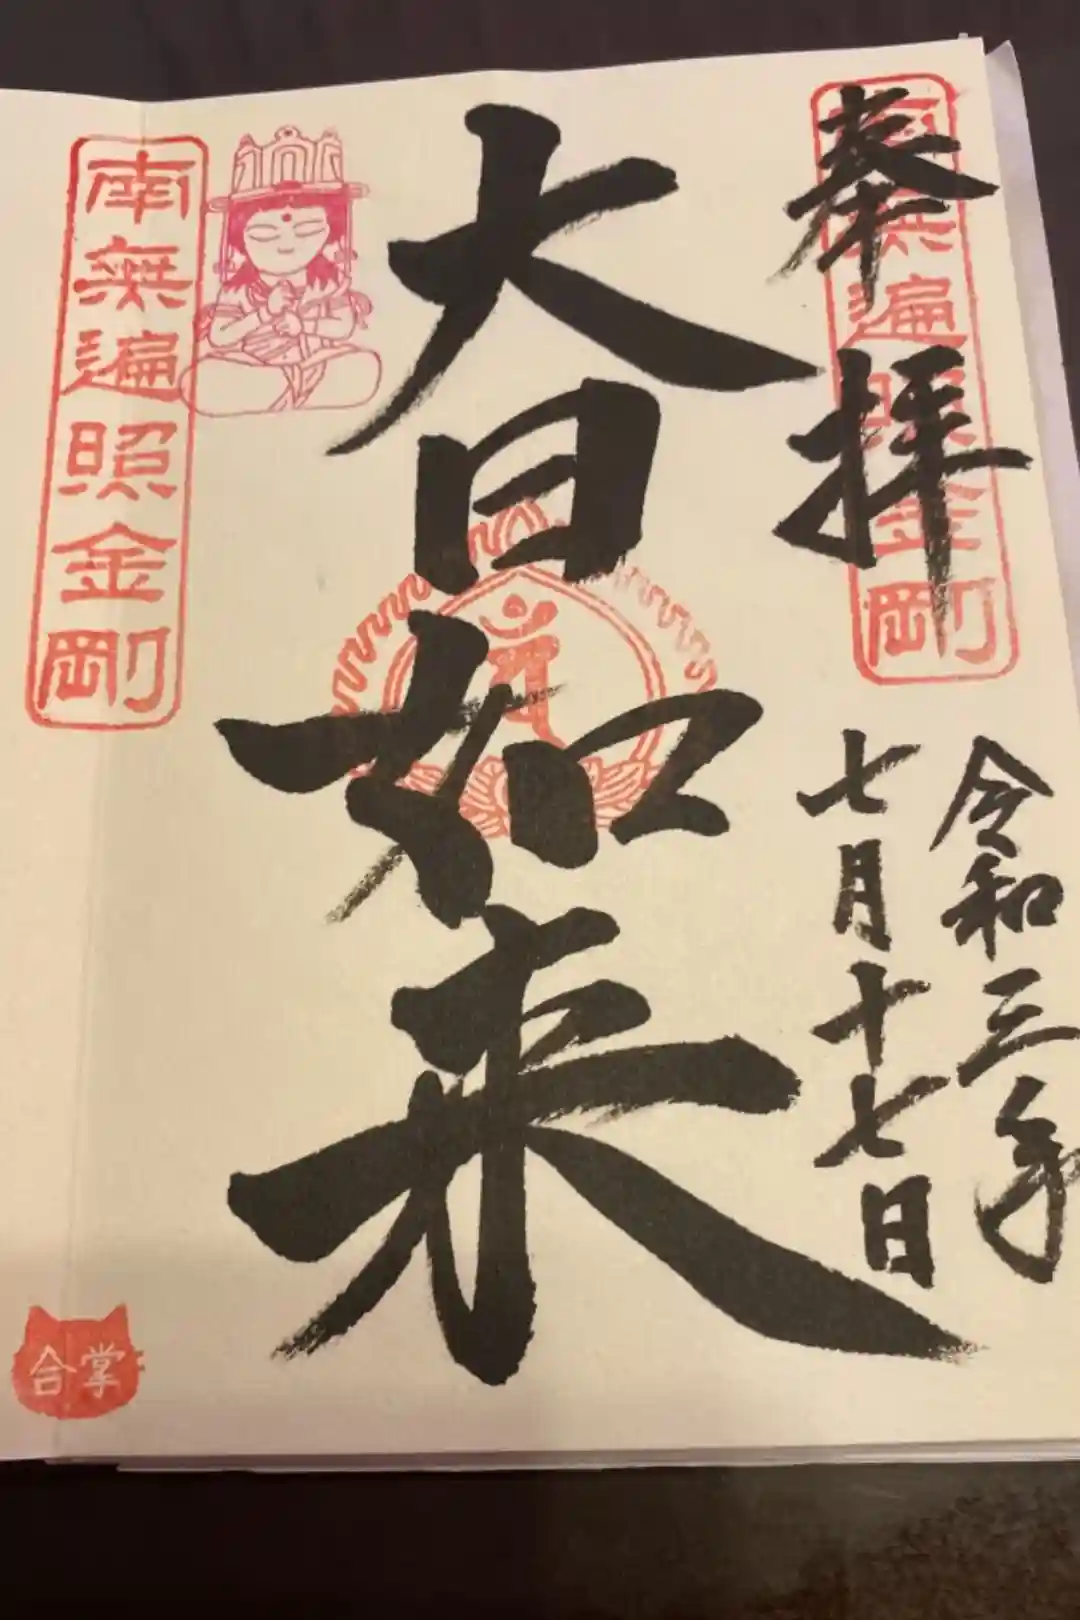 奉拝
令和三年
七月十七日
大日如来
南無遍照金剛
南無遍照金剛
合掌